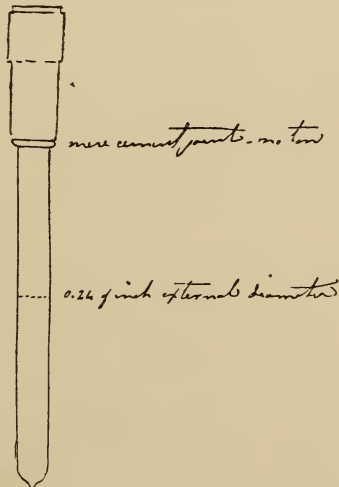 mere cement joint - no tow
0.26 of inch external diameter